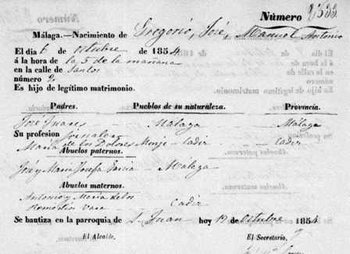 Número 1,533
Málaga.—Nacimiento de Gregorio, José, Manuel Antonio
El dia 6 de Octubre de 1854
á la hora de la 5 de la mañana
en la calle de Santos
número 2
Es hijo de legítimo matrimonio.
Padres. Pueblos de su naturaleza. Provincia.
José Juares Malaga Malaga
Su profesion
Maria de los Dolores Cadiz Cadiz
Abuelos paternos.
José y Maria Josefa Malaga
Abuelos maternos.
Antonio y Maria de los Cadiz
Remedios
Se bautiza en la parroquia de S. Juan hoy Octubre 1854
El Alcalde, El Secretario,